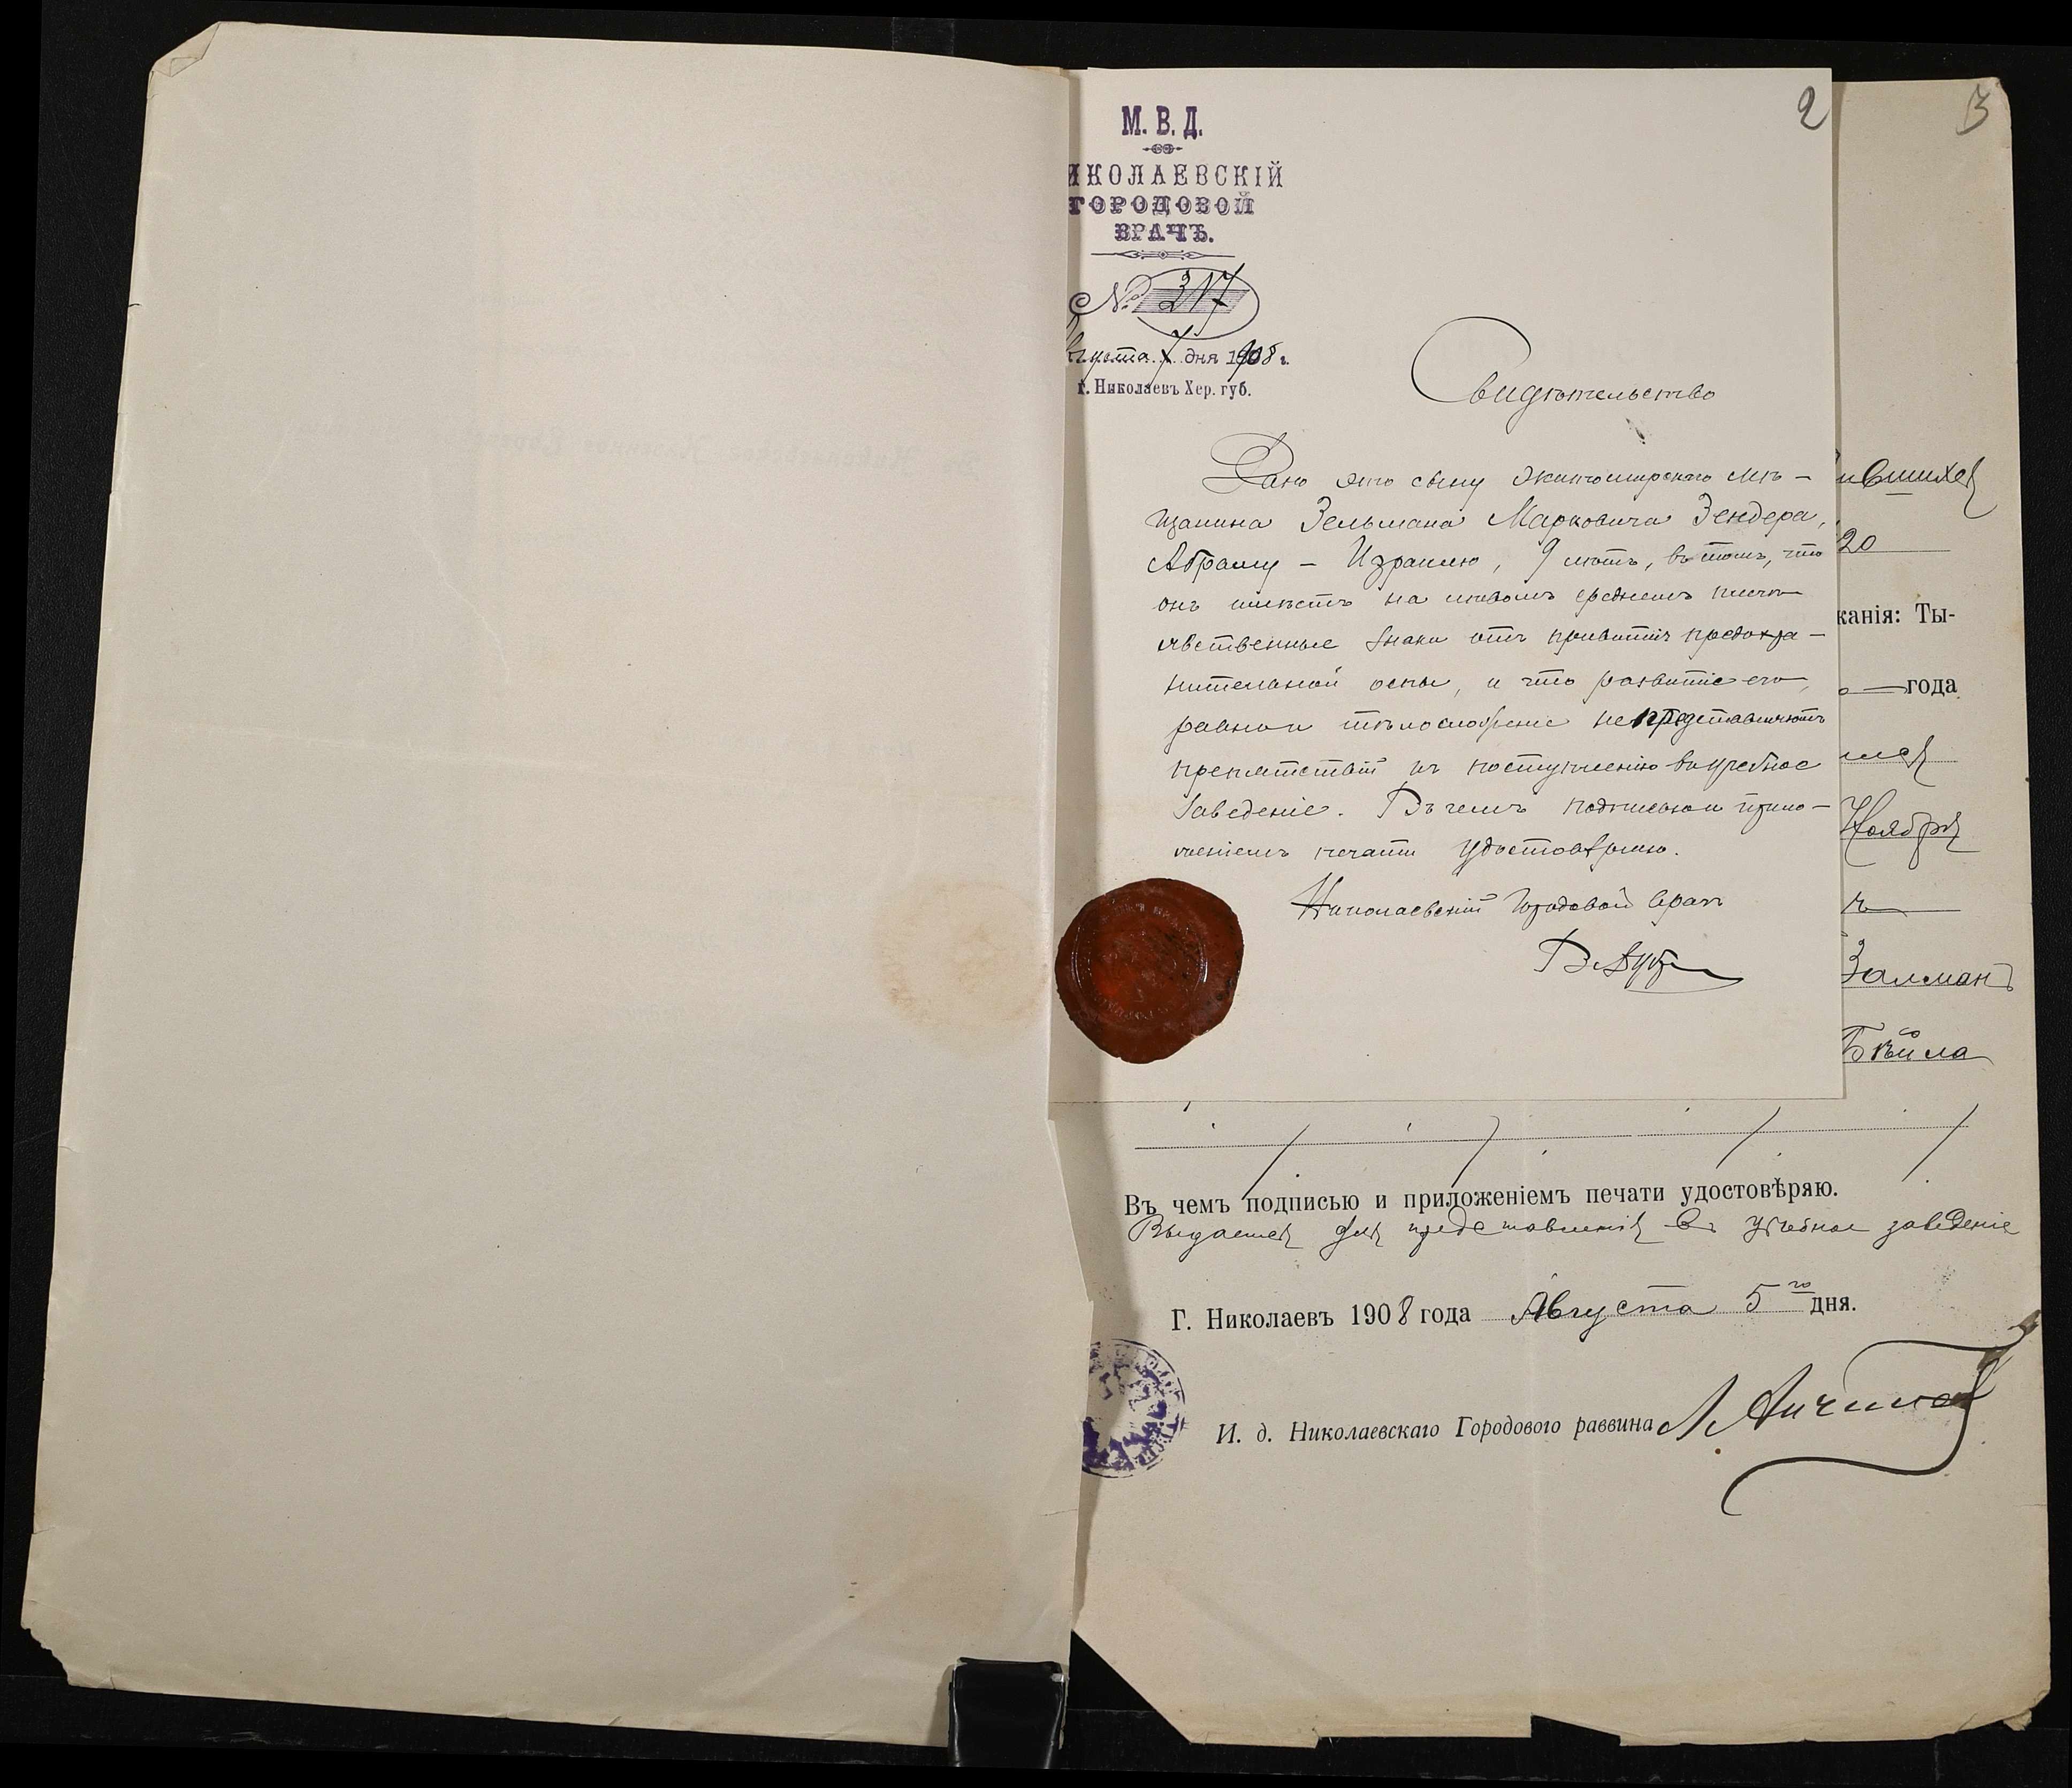 2
3
М. В. Д.
ИКОЛАЕВСКІЙ
ГОРОДОВОЙ
ВРАЧЪ.
№ 317
Августа 7 дня 1908 г.
г. Николаевъ Хер. губ.
Свидѣтельство
Дано это сыну житомирскаго мѣ-
щанина Зельмана Марковича Зендера,
Абраму - Израилю, 9 лѣтъ, въ томъ, что
онъ имѣетъ на лѣвомъ среднемъ плечѣ
явственные знаки отъ привитія предохра-
нительной оспы, и что развитіе его,
равно и тѣлосложеніе не представляютъ
препятствій къ поступленію въ учебное
заведеніе. Въ чемъ подписью и прило-
женіемъ печати удостовѣряю.
Николаевскій Городовой врачъ
ившихся
20
канія: Ты-
года
лся
Ноября
Залманъ
Бейла
Въ чемъ подписью и приложеніемъ печати удостовѣряю.
Выдается для представленія въ учебное заведеніе
Г. Николаевъ 1908 года Августа 5го дня.
И. д. Николаевскаго Городового раввина